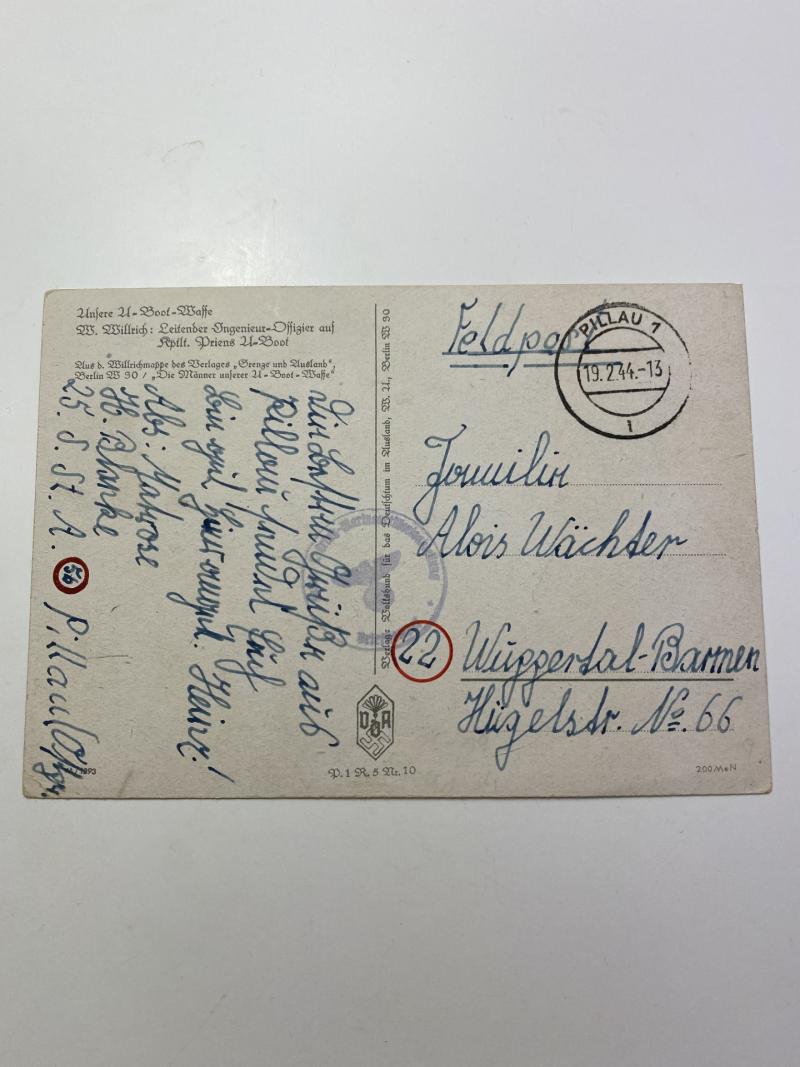 Unsere U-Boot-Waffe
W. Willrich: Leitender Ingenieur-Offizier auf
Kptlt. Priens U-Boot
Aus d. Willrichmappe des Verlages „Grenze und Ausland“,
Berlin W 30 / „Die Männer unserer U-Boot-Waffe“
Die besten Grüße aus
Pillau sendet Euch
Bin gut hier Heinz!
Abs: Matrose
H. Blanke
25. S. St. A.
5b Pillau/Opr.
Verlag: Volksbund für das Deutschtum im Ausland, W. U., Berlin W 30
VDA
P. 1 R. 5 Nr. 10
Feldpost
PILLAU 1
19.2.44.-13
i
Familie
Alois Wächter
22 Wuppertal-Barmen
Hügelstr. No. 66
200 MeN